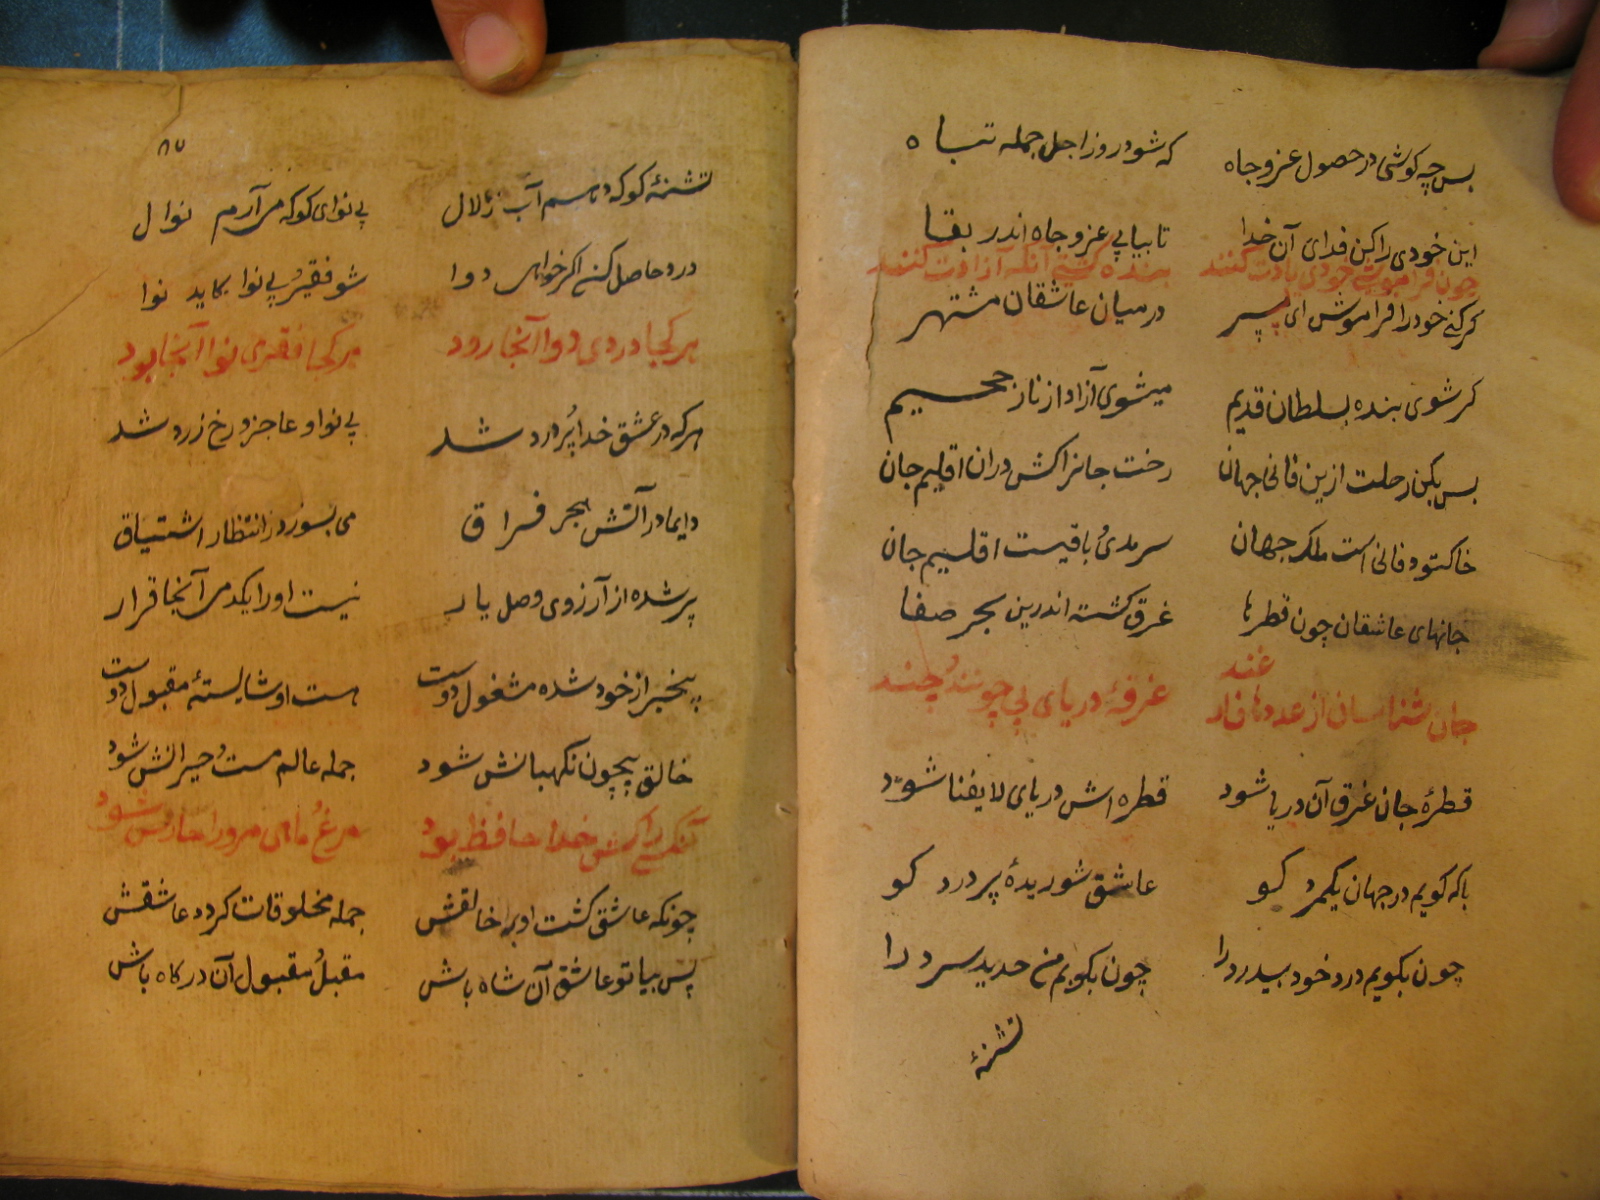 بس چه کوشی در حصول عز و جاه که شود روز اجل جمله تباه
این خودی را کن فدای آن خدا تا بیابی عز و جاه اندر بقا
چون فراموش خودی یادت کنند بنده گشتی آنگه آزادت کنند
کر کنی خود را فراموش ای پسر در میان عاشقان مشتهر
کر شوی بنده بسلطان قدیم میشوی آزاد از نار جحیم
بس بکن رحلت ازین فانی جهان رخت جانرا کش دران اقلیم جان
خاکتوده فانی است ملک جهان سرمدی باقیست اقلیم جان
جانهای عاشقان چون قطرها غرق کشته اندرین بحر صفا
جان شناسان از عددها فارغند غرقهٔ دریای بی چونند و چند
قطرهٔ جان غرق آن دریا شود قطره اش دریای لا یفنا شود
باکه کویم در جهان یکمرد کو عاشق شوریدهٔ پر درد کو
چون بکویم درد خود بیدرد را چون بکویم من حدید سرد را
تشنهٔ
۸۷
تشنهٔ کو که دهم آب زلال بی نوای کو که من آرم نوال
درد حاصل کن اکر خواهی دوا شو فقیر بی نوا کاید نوا
هر کجا دردی دوا آنجا رود هر کجا فقری نوا آنجا بود
هر که در عشق خدا پر درد شد بی نوا و عاجز و رخ زرد شد
دایما در آتش هجر فراق می بسوزد ز انتظار اشتیاق
پر شده از آرزوی وصل یار نیست او را یکدمی آنجا قرار
بیخبر از خود شده مشغول دوست هست او شایستهٔ مقبول دوست
خالق بیچون نکهبانش شود جمله عالم مست و حیرانش شود
آنکسی را کش خدا حافظ بود مرغ و ماهی مرورا حارس شود
چونکه عاشق کشت او بر خالقش جمله مخلوقات کردد عاشقش
پس بیا تو عاشق آن شاه باش مقبل و مقبول آن درکاه باش